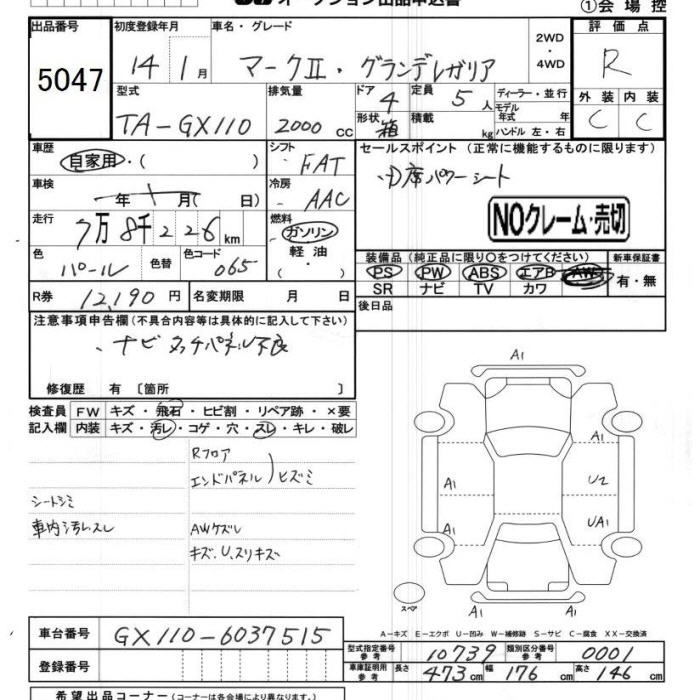 オークション出品申込書
①会場控
出品番号 初度登録年月 車名・グレード 評価点
5047 14年1月 マークⅡ・グランデレガリア 2WD・4WD R
型式 排気量 ドア 定員 ディーラー・並行 外装 内装
TA-GX110 2000cc 4 5人 モデル年式 年 C C
形状 箱 積載 kg ハンドル 左・右
車歴 シフト セールスポイント (正常に機能するものに限ります)
自家用・( ) FAT ・D席パワーシート
車検 冷房
年 月( 日) AAC
走行 燃料 NOクレーム・売切
7万8千226km ガソリン
色 色替 色コード 軽油 装備品 (純正品に限り○をつけてください) 新車保証書
パール 065 ( ・ ) PS PW ABS エアB AW 有・無
SR ナビ TV カワ
R券 12,190円 名変期限 月 日 後日品
注意事項申告欄 (不具合内容等は具体的に記入して下さい)
、ナビタッチパネル不良
修復歴 有 〔箇所 〕
検査員 FW キズ・飛石・ヒビ割・リペア跡・×要
記入欄 内装 キズ・汚レ・コゲ・穴・スレ・キレ・破レ
Rフロア
エンドパネル)ヒズミ
シートシミ
車内汚レスレ AWケズレ
キズ、U、スリキズ
A1
A1
A1 U2
A1 UA1
スペア
A1
A-キズ E-エクボ U-凹み W-補修跡 S-サビ C-腐食 XX-交換済
車台番号 GX110-6037515
型式指定番号 参考 10739 類別区分番号 参考 0001
登録番号
車庫証明用 参考 長さ 473cm 幅 176cm 高さ 146cm
希望出品コーナー (コーナーは各会場により異なります)